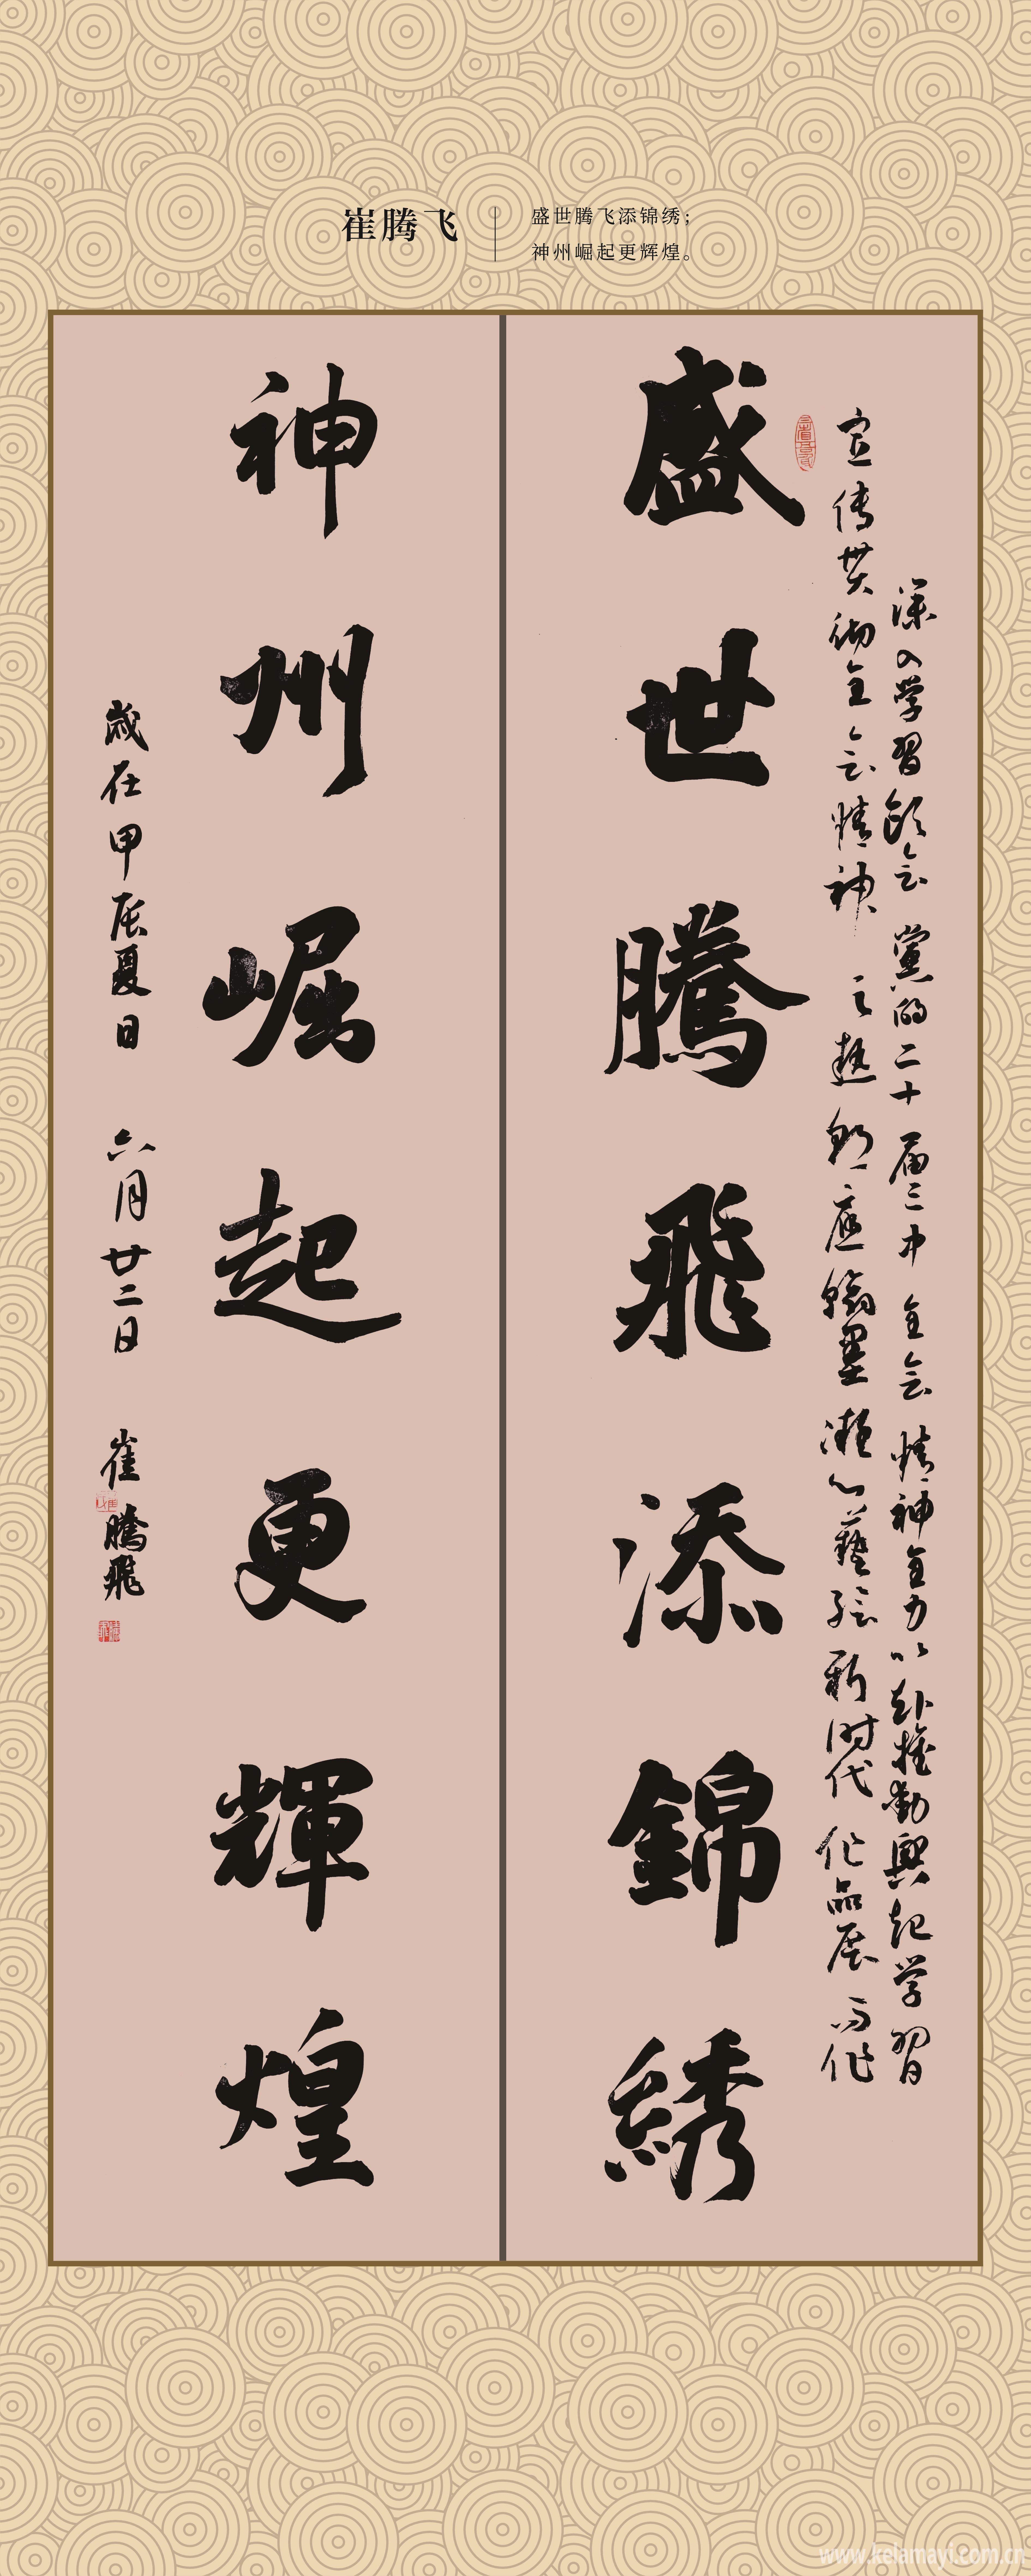 崔腾飞
盛世腾飞添锦绣；
神州崛起更辉煌。
深入学习领会党的二十届三中全会精神全力以赴推动兴起学习
宣传贯彻全会精神之热潮应翰墨凝心艺绘新时代作品展而作
盛世騰飛添錦綉
神州崛起更輝煌
歲在甲辰夏日 六月廿二日 崔騰飛
www.kelamayi.com.cn